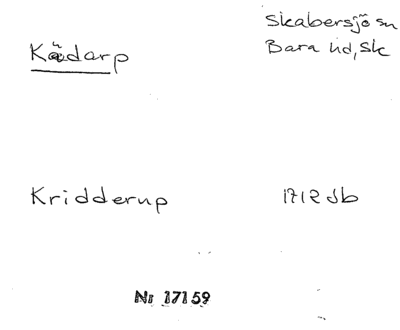 Skabersjö sn
Kädarp
Bara hd, Sk
Kridderup
1712 Jb
Nr 17159